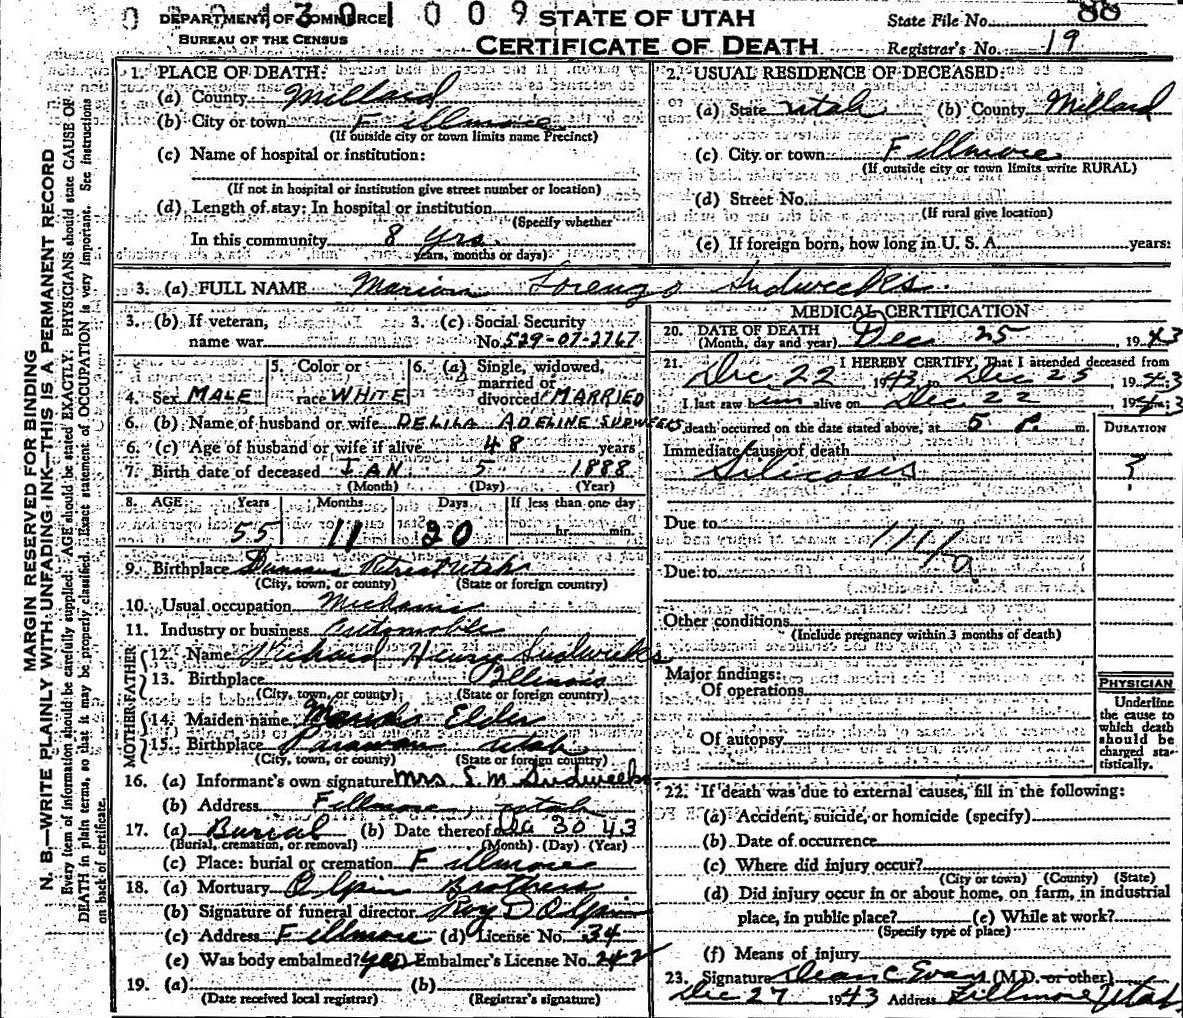 DEPARTMENT OF COMMERCE
BUREAU OF THE CENSUS
STATE OF UTAH
CERTIFICATE OF DEATH
State File No. 88
Registrar's No. 19
MARGIN RESERVED FOR BINDING
N. B.—WRITE PLAINLY WITH UNFADING INK—THIS IS A PERMANENT RECORD
Every item of information should be carefully supplied. AGE should be stated EXACTLY. PHYSICIANS should state CAUSE OF
DEATH in plain terms, so that it may be properly classified. Exact statement of OCCUPATION is very important. See instructions
on back of certificate.
1. PLACE OF DEATH:
(a) County Millard
(b) City or town Fillmore
(If outside city or town limits name Precinct)
(c) Name of hospital or institution:
(If not in hospital or institution give street number or location)
(d) Length of stay: In hospital or institution
(Specify whether
In this community 8 yrs.
years, months or days)
2. USUAL RESIDENCE OF DECEASED:
(a) State Utah (b) County Millard
(c) City or town Fillmore
(If outside city or town limits write RURAL)
(d) Street No.
(If rural give location)
(e) If foreign born, how long in U. S. A. years:
3. (a) FULL NAME Marion Lorenzo Sudweeks
3. (b) If veteran, name war
3. (c) Social Security No. 529-07-2767
4. Sex MALE
5. Color or race WHITE
6. (a) Single, widowed, married or divorced MARRIED
6. (b) Name of husband or wife DELILA ADELINE SUDWEEKS
6. (c) Age of husband or wife if alive 48 years
7. Birth date of deceased JAN 5 1888
(Month) (Day) (Year)
8. AGE Years Months Days If less than one day
55 11 20 hr. min.
9. Birthplace Utah
(City, town, or county) (State or foreign country)
10. Usual occupation Mechanic
11. Industry or business Automobile
FATHER
12. Name Richard Henry Sudweeks
13. Birthplace Illinois
(City, town, or county) (State or foreign country)
MOTHER
14. Maiden name Elder
15. Birthplace Parawan Utah
(City, town, or county) (State or foreign country)
16. (a) Informant's own signature Mrs. S M Sudweeks
(b) Address Fillmore, Utah
17. (a) Burial (b) Date thereof Dec 30 43
(Burial, cremation, or removal) (Month) (Day) (Year)
(c) Place: burial or cremation Fillmore
18. (a) Mortuary Olpin Brothers
(b) Signature of funeral director Roy D Olpin
(c) Address Fillmore (d) License No. 34
(e) Was body embalmed? yes (f) Embalmer's License No. 242
19. (a) (b)
(Date received local registrar) (Registrar's signature)
MEDICAL CERTIFICATION
20. DATE OF DEATH
(Month, day and year) Dec 25, 1943
21. I HEREBY CERTIFY, That I attended deceased from
Dec 22 1943 to Dec 25, 1943
I last saw him alive on Dec 22 1943
death occurred on the date stated above, at 5 P. m.
DURATION
Immediate cause of death
Silicosis ?
Due to
Due to
Other conditions
(Include pregnancy within 3 months of death)
Major findings:
Of operations
Of autopsy
PHYSICIAN
Underline
the cause to
which death
should be
charged sta-
tistically.
22. If death was due to external causes, fill in the following:
(a) Accident, suicide, or homicide (specify)
(b) Date of occurrence
(c) Where did injury occur?
(City or town) (County) (State)
(d) Did injury occur in or about home, on farm, in industrial
place, in public place? (e) While at work?
(Specify type of place)
(f) Means of injury
23. Signature Dean C Evans (M.D. or other)
Dec 27 1943 Address Fillmore Utah